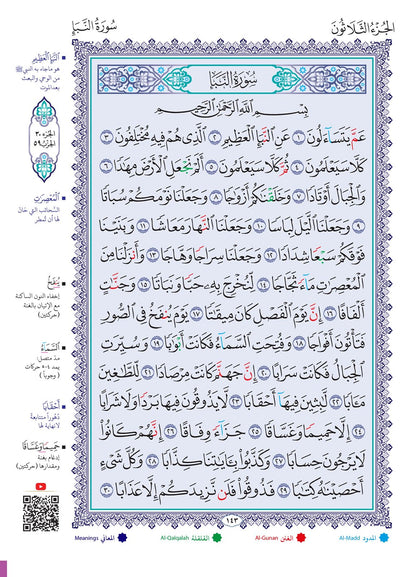 الجُزْءُ الثَّلَاثُونَ
سُورَةُ النَّبَإِ
سُورَةُ النَّبَإِ
بِسْمِ ٱللَّهِ ٱلرَّحْمَٰنِ ٱلرَّحِيمِ
عَمَّ يَتَسَآءَلُونَ ١ عَنِ ٱلنَّبَإِ ٱلْعَظِيمِ ٢ ٱلَّذِى هُمْ فِيهِ مُخْتَلِفُونَ ٣
كَلَّا سَيَعْلَمُونَ ٤ ثُمَّ كَلَّا سَيَعْلَمُونَ ٥ أَلَمْ نَجْعَلِ ٱلْأَرْضَ مِهَٰدًا ٦
وَٱلْجِبَالَ أَوْتَادًا ٧ وَخَلَقْنَٰكُمْ أَزْوَٰجًا ٨ وَجَعَلْنَا نَوْمَكُمْ سُبَاتًا
٩ وَجَعَلْنَا ٱلَّيْلَ لِبَاسًا ١٠ وَجَعَلْنَا ٱلنَّهَارَ مَعَاشًا ١١ وَبَنَيْنَا
فَوْقَكُمْ سَبْعًا شِدَادًا ١٢ وَجَعَلْنَا سِرَاجًا وَهَّاجًا ١٣ وَأَنزَلْنَا مِنَ
ٱلْمُعْصِرَٰتِ مَآءً ثَجَّاجًا ١٤ لِّنُخْرِجَ بِهِۦ حَبًّا وَنَبَاتًا ١٥ وَجَنَّٰتٍ
أَلْفَافًا ١٦ إِنَّ يَوْمَ ٱلْفَصْلِ كَانَ مِيقَٰتًا ١٧ يَوْمَ يُنفَخُ فِى ٱلصُّورِ
فَتَأْتُونَ أَفْوَاجًا ١٨ وَفُتِحَتِ ٱلسَّمَآءُ فَكَانَتْ أَبْوَٰبًا ١٩ وَسُيِّرَتِ
ٱلْجِبَالُ فَكَانَتْ سَرَابًا ٢٠ إِنَّ جَهَنَّمَ كَانَتْ مِرْصَادًا ٢١ لِّلطَّٰغِينَ
مَـَٔابًا ٢٢ لَّٰبِثِينَ فِيهَآ أَحْقَابًا ٢٣ لَّا يَذُوقُونَ فِيهَا بَرْدًا وَلَا شَرَابًا
٢٤ إِلَّا حَمِيمًا وَغَسَّاقًا ٢٥ جَزَآءً وِفَاقًا ٢٦ إِنَّهُمْ كَانُوا۟
لَا يَرْجُونَ حِسَابًا ٢٧ وَكَذَّبُوا۟ بِـَٔايَٰتِنَا كِذَّابًا ٢٨ وَكُلَّ شَىْءٍ
أَحْصَيْنَٰهُ كِتَٰبًا ٢٩ فَذُوقُوا۟ فَلَن نَّزِيدَكُمْ إِلَّا عَذَابًا ٣٠
١٤٣
النَّبَإِ الْعَظِيمِ
هو ما جاء به النبي ﷺ
من الوحي والبعث
بعد الموت
الجزء ٣٠
الحزب ٥٩
الْمُعْصِرَاتِ
السحائب التي حان
لها أن تمطر
يُنفَخُ
إخفاء النون الساكنة
مع الإتيان بالغنة
(حركتين)
السَّمَآءُ
مد متصل
يمد ٤-٥ حركات
(وجوبا)
أَحْقَابًا
دهورا متتابعة
لا نهاية لها
حَمِيمًا وَغَسَّاقًا
إدغام بغنة
ومقدارها (حركتين)
المدود Al-Madd
الغنن Al-Gunan
القلقلة Al-Qalqalah
المعاني Meanings